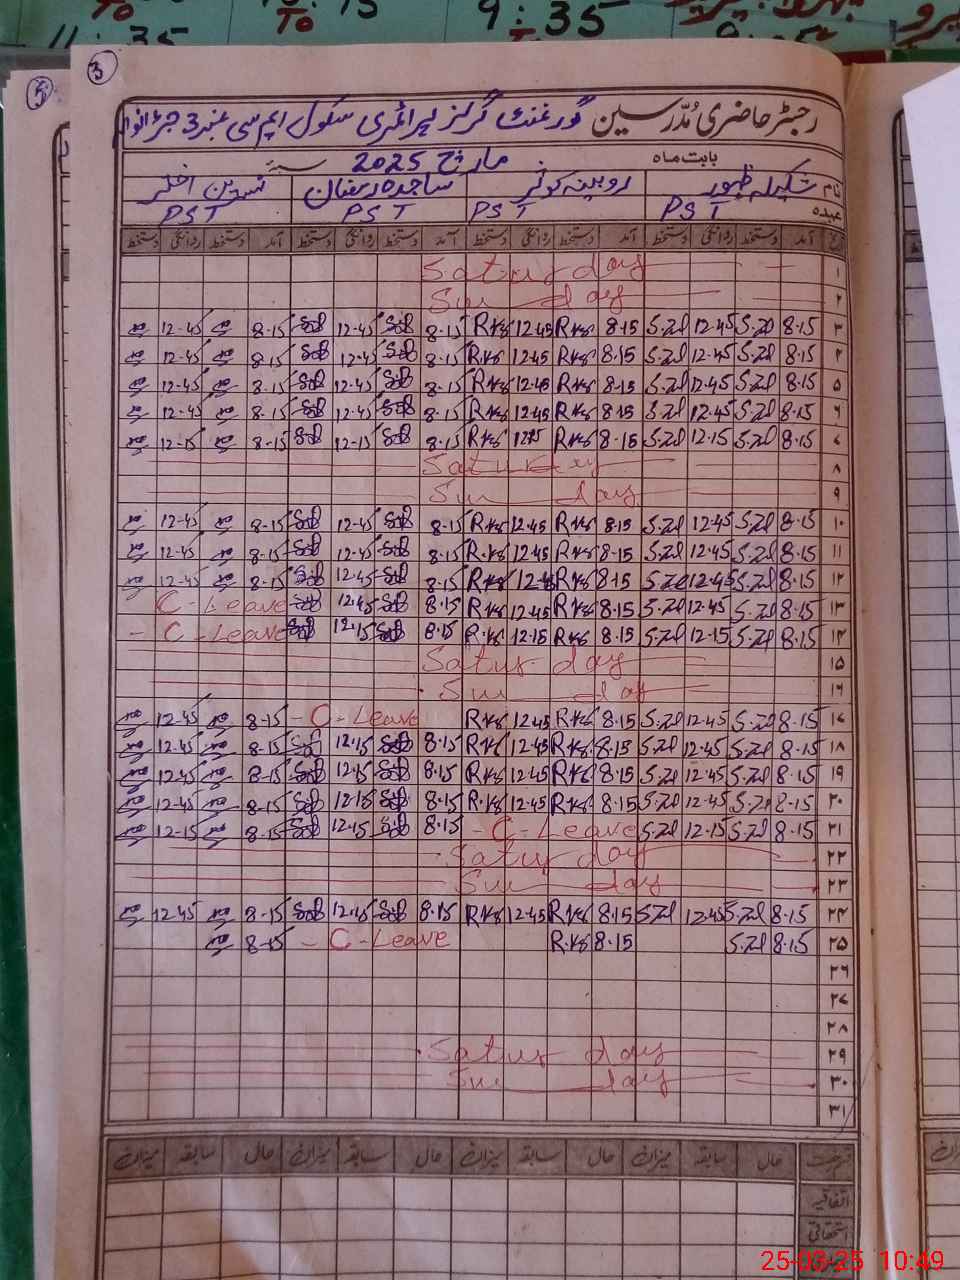 11:35
To
15
9:35
3
5
رجسٹر حاضری مُدّرسین گورنمنٹ گرلز پرائمری سکول ایم سی نمبر 3 جڑانوالہ
بابت ماہ مارچ 2025 سنہ
نام شکیلہ ظہور روبینہ کوثر ساجدہ رمضان نسرین اختر
عہدہ PST PST PST PST
آمد دستخط روانگی دستخط آمد دستخط روانگی دستخط آمد دستخط روانگی دستخط آمد دستخط روانگی دستخط
۱ Saturday
۲ Sunday
۳ 8.15 S.Zd 12.45 S.Zd 8.15 Rks 12.45 Rks 8.15 12.45 8.15 12.45
۴ 8.15 S.Zd 12.45 S.Zd 8.15 Rks 12.45 Rks 8.15 12.45 8.15 12.45
۵ 8.15 S.Zd 12.45 S.Zd 8.15 Rks 12.45 Rks 8.15 12.45 8.15 12.45
۶ 8.15 S.Zd 12.45 S.Zd 8.15 Rks 12.45 Rks 8.15 12.45 8.15 12.45
۷ 8.15 S.Zd 12.15 S.Zd 8.15 Rks 12.15 Rks 8.15 12.15 8.15 12.15
۸ Saturday
۹ Sunday
۱۰ 8.15 S.Zd 12.45 S.Zd 8.15 Rks 12.45 Rks 8.15 12.45 8.15 12.45
۱۱ 8.15 S.Zd 12.45 S.Zd 8.15 Rks 12.45 Rks 8.15 12.45 8.15 12.45
۱۲ 8.15 S.Zd 12.45 S.Zd 8.15 Rks 12.45 Rks 8.15 12.45 8.15 12.45
۱۳ 8.15 S.Zd 12.45 S.Zd 8.15 Rks 12.45 Rks 8.15 12.45 C-Leave
۱۴ 8.15 S.Zd 12.15 S.Zd 8.15 Rks 12.15 Rks 8.15 12.15 - C-Leave
۱۵ Saturday
۱۶ Sunday
۱۷ 8.15 S.Zd 12.45 S.Zd 8.15 Rks 12.45 Rks - C-Leave 8.15 12.45
۱۸ 8.15 S.Zd 12.45 S.Zd 8.15 Rks 12.45 Rks 8.15 12.15 8.15 12.45
۱۹ 8.15 S.Zd 12.45 S.Zd 8.15 Rks 12.45 Rks 8.15 12.45 8.15 12.45
۲۰ 8.15 S.Zd 12.45 S.Zd 8.15 Rks 12.45 Rks 8.15 12.15 8.15 12.45
۲۱ 8.15 S.Zd 12.15 S.Zd - C-Leave 8.15 12.15 8.15 12.15
۲۲ Saturday
۲۳ Sunday
۲۴ 8.15 S.Zd 12.45 S.Zd 8.15 Rks 12.45 Rks 8.15 12.45 8.15 12.45
۲۵ 8.15 S.Zd 8.15 Rks - C-Leave 8.15
۲۶
۲۷
۲۸
۲۹ Saturday
۳۰ Sunday
۳۱
حال سابقہ میزان حال سابقہ میزان حال سابقہ میزان حال سابقہ میزان
اتفاقیہ
استحقاقی
25-03-25 10:49